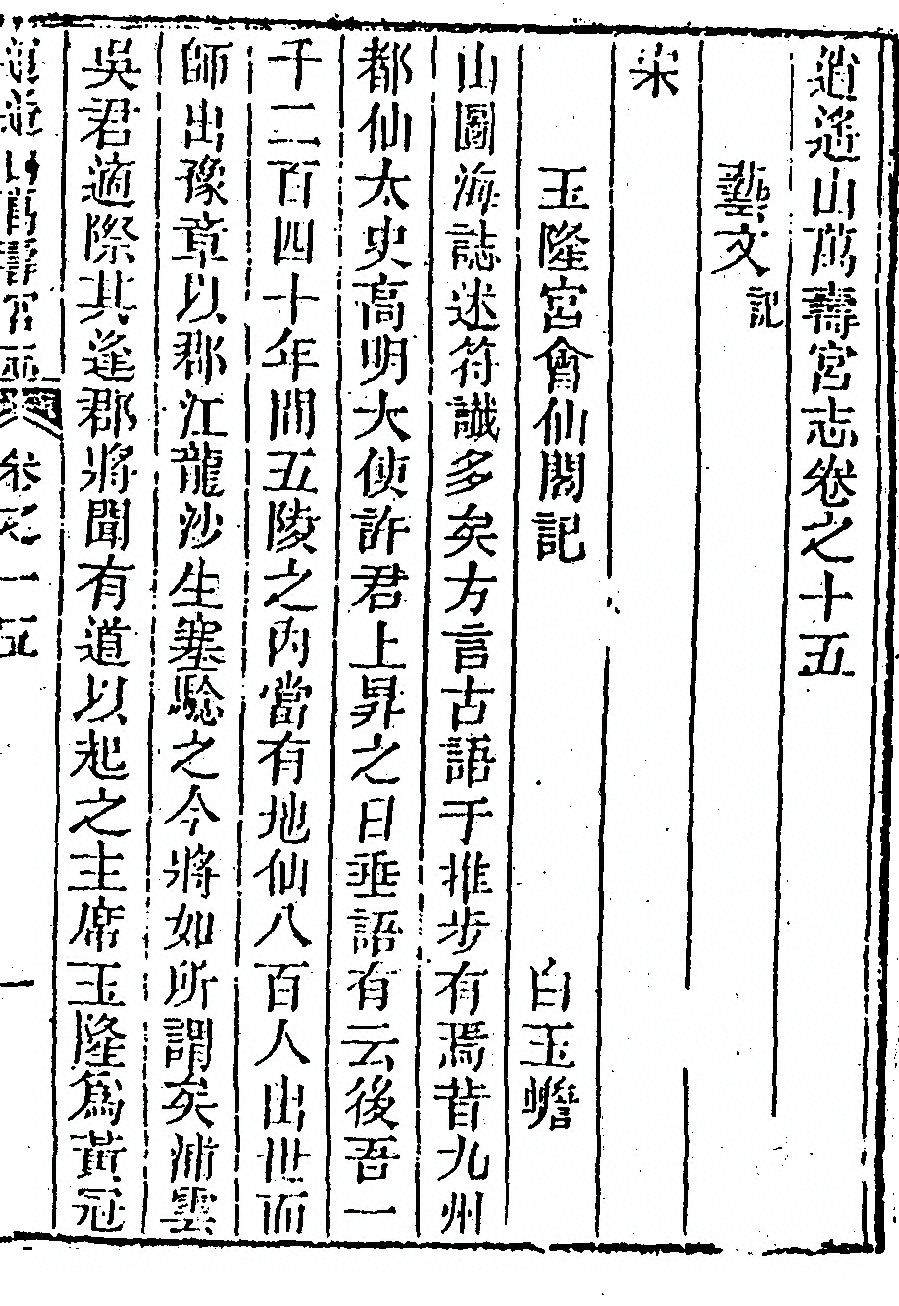 逍遙山萬壽宮志卷之十五
藝文記
宋
玉隆宮會仙閣記 白玉蟾
山圖海誌迷符讖多矣方言古語于推步有焉昔九州
都仙太史高明大使許君上昇之日垂語有云後吾一
千二百四十年間五陵之內當有地仙八百人出世而
師出豫章以郡江龍沙生塞驗之今將如所謂矣浦雲
吳君適際其逢郡將聞有道以起之主席玉隆為黃冠
逍遙山萬壽宮志 卷之十五 一